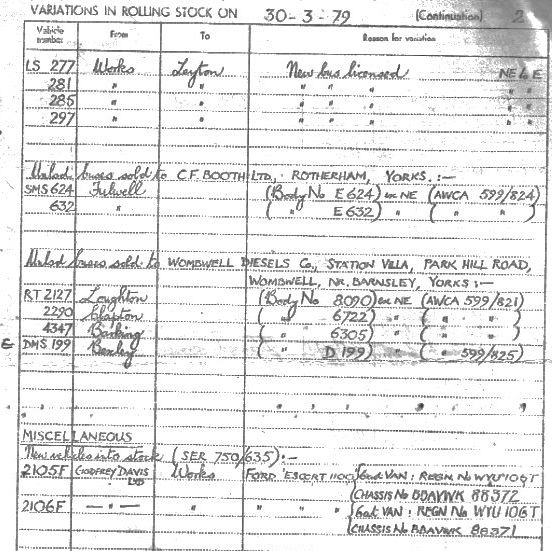 VARIATIONS IN ROLLING STOCK ON 30-3-79 (Continuation) 2
Vehicle number From To Reason for variation
LS 277 Works Leyton New bus licensed NE & E
281 " " " " " " "
285 " " " " " " "
297 " " " " " " "
buses sold to C.F. BOOTH LTD, ROTHERHAM, YORKS. :—
SMS 624 Fulwell (Body No E 624) ex NE (AWCA 599/824)
632 " ( " E 632) " ( " " )
buses sold to WOMBWELL DIESELS Co, STATION VILLA, PARK HILL ROAD,
WOMBWELL, NR. BARNSLEY, YORKS :—
RT 2127 Loughton (Body No 8090) ex NE (AWCA 599/821)
2290 Clapton ( " 6722) " ( " " )
4347 Barking ( " 6305) " ( " " )
DMS 199 Bexley ( " D 199) " ( " 599/825)
MISCELLANEOUS
New vehicles into stock (SER 750/635) :—
2105F GODFREY DAVIS LTD Works FORD 'ESCORT 1100' VAN : REGN No WYU 105T
(CHASSIS No BBAVWK 88372
2106F — " — " " " " VAN : REGN No WYU 106T
(CHASSIS No BBAVWK 88371